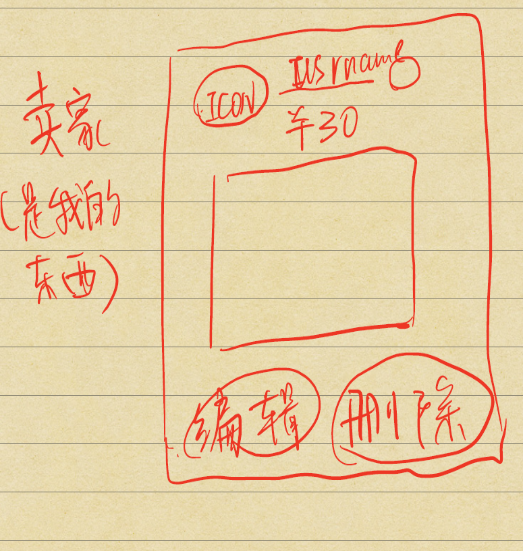 卖家
(是我的
东西)
ICON
Usrname
¥30
编辑
删除